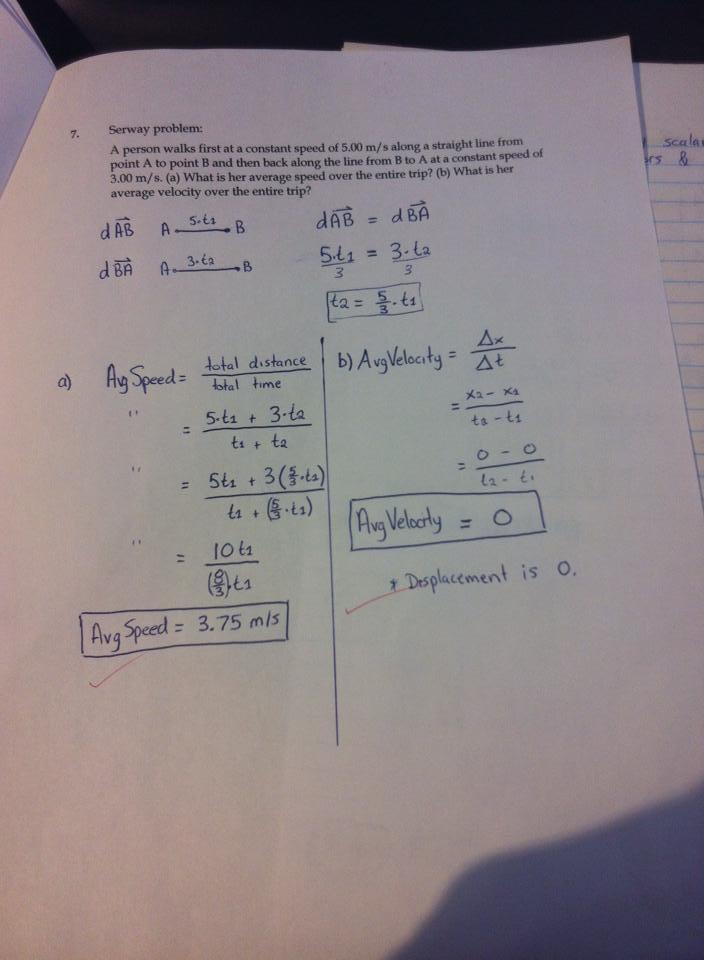 7. Serway problem:
A person walks first at a constant speed of 5.00 m/s along a straight line from
point A to point B and then back along the line from B to A at a constant speed of
3.00 m/s. (a) What is her average speed over the entire trip? (b) What is her
average velocity over the entire trip?
d AB→ A 5·t1 B
d BA→ A 3·t2 B
dAB→ = dBA→
5·t1/3 = 3·t2/3
t2 = 5/3 · t1
a) Avg Speed = total distance / total time
" = 5·t1 + 3·t2 / t1 + t2
" = 5t1 + 3(5/3·t1) / t1 + (5/3·t1)
" = 10t1 / (8/3)·t1
Avg Speed = 3.75 m/s
b) Avg Velocity = Δx / Δt
= x2 - x1 / t2 - t1
= 0 - 0 / t2 - t1
Avg Velocity = 0
* Displacement is 0.
scalar
rs &